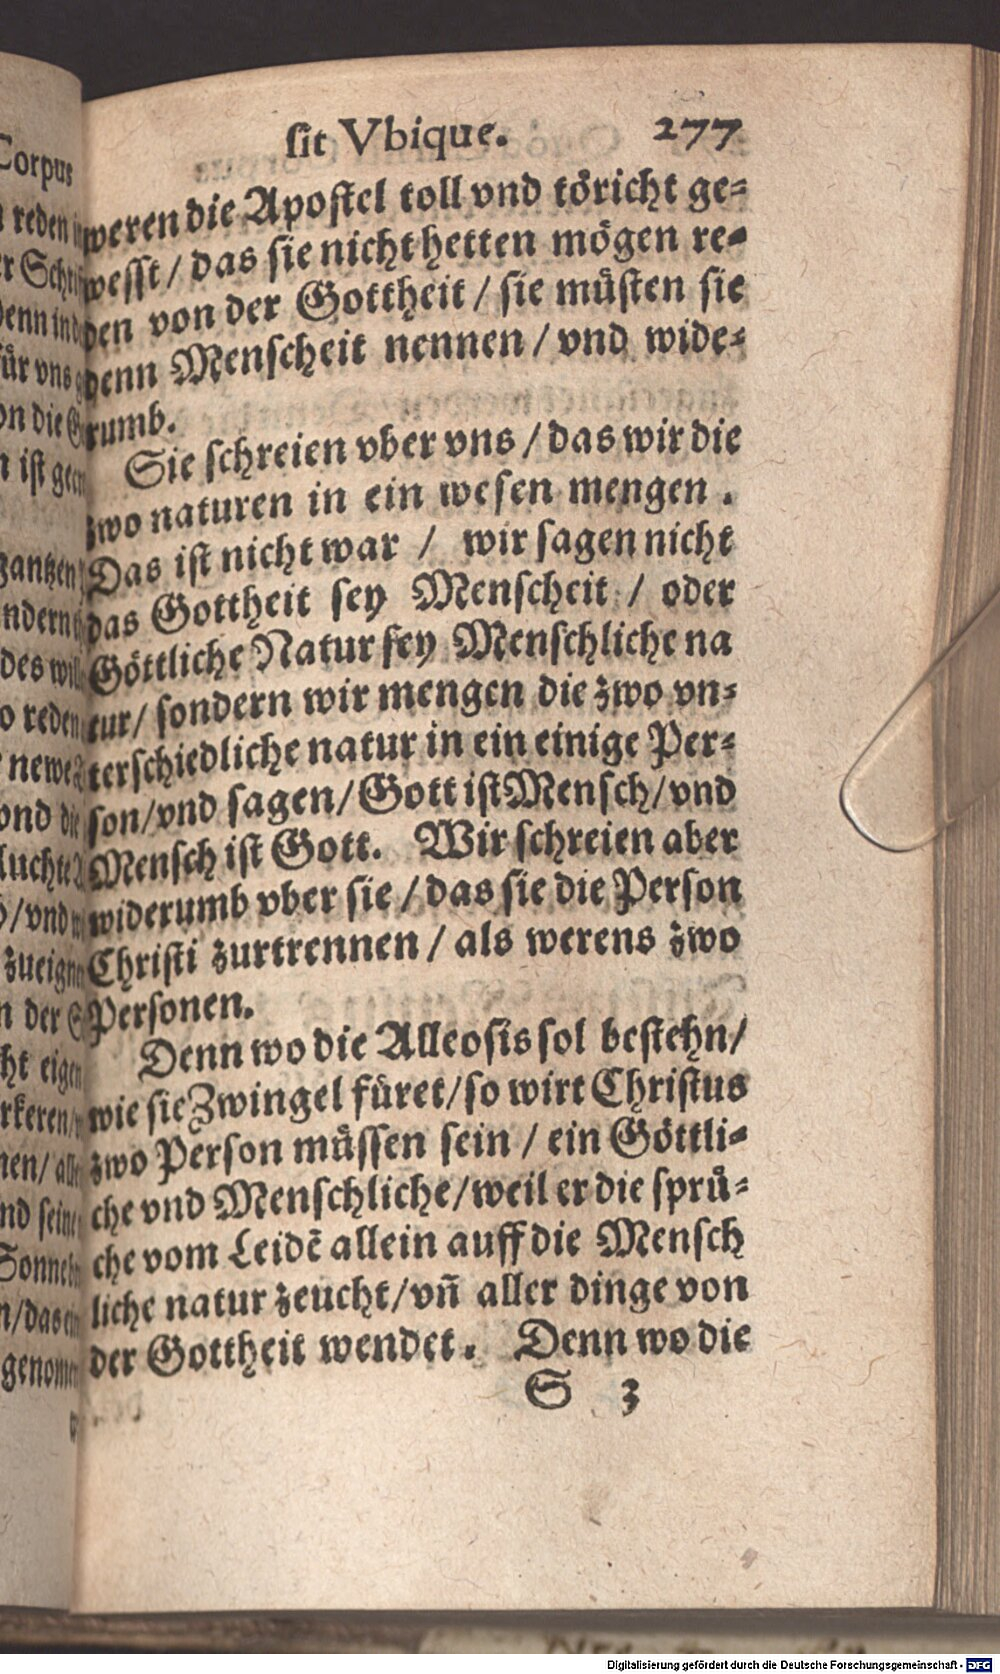 sit Vbique. 277
weren die Apostel toll vnd töricht ge-
wesst / das sie nicht hetten mögen re-
den von der Gottheit / sie müsten sie
denn Menscheit nennen / vnd wide-
rumb.
Sie schreien vber vns / das wir die
zwo naturen in ein wesen mengen .
Das ist nicht war / wir sagen nicht
das Gottheit sey Menscheit / oder
Göttliche Natur sey Menschliche na
tur / sondern wir mengen die zwo vn-
terschiedliche natur in ein einige Per-
son / vnd sagen / Gott ist Mensch / vnd
Mensch ist Gott. Wir schreien aber
widerumb vber sie / das sie die Person
Christi zurtrennen / als werens zwo
Personen.
Denn wo die Alleosis sol bestehn /
wie sie Zwingel füret / so wirt Christus
zwo Person müssen sein / ein Göttli-
che vnd Menschliche / weil er die sprü-
che vom Leidē allein auff die Mensch
liche natur zeucht / vn̄ aller dinge von
der Gottheit wendet. Denn wo die
S 3
Digitalisierung gefördert durch die Deutsche Forschungsgemeinschaft - DFG